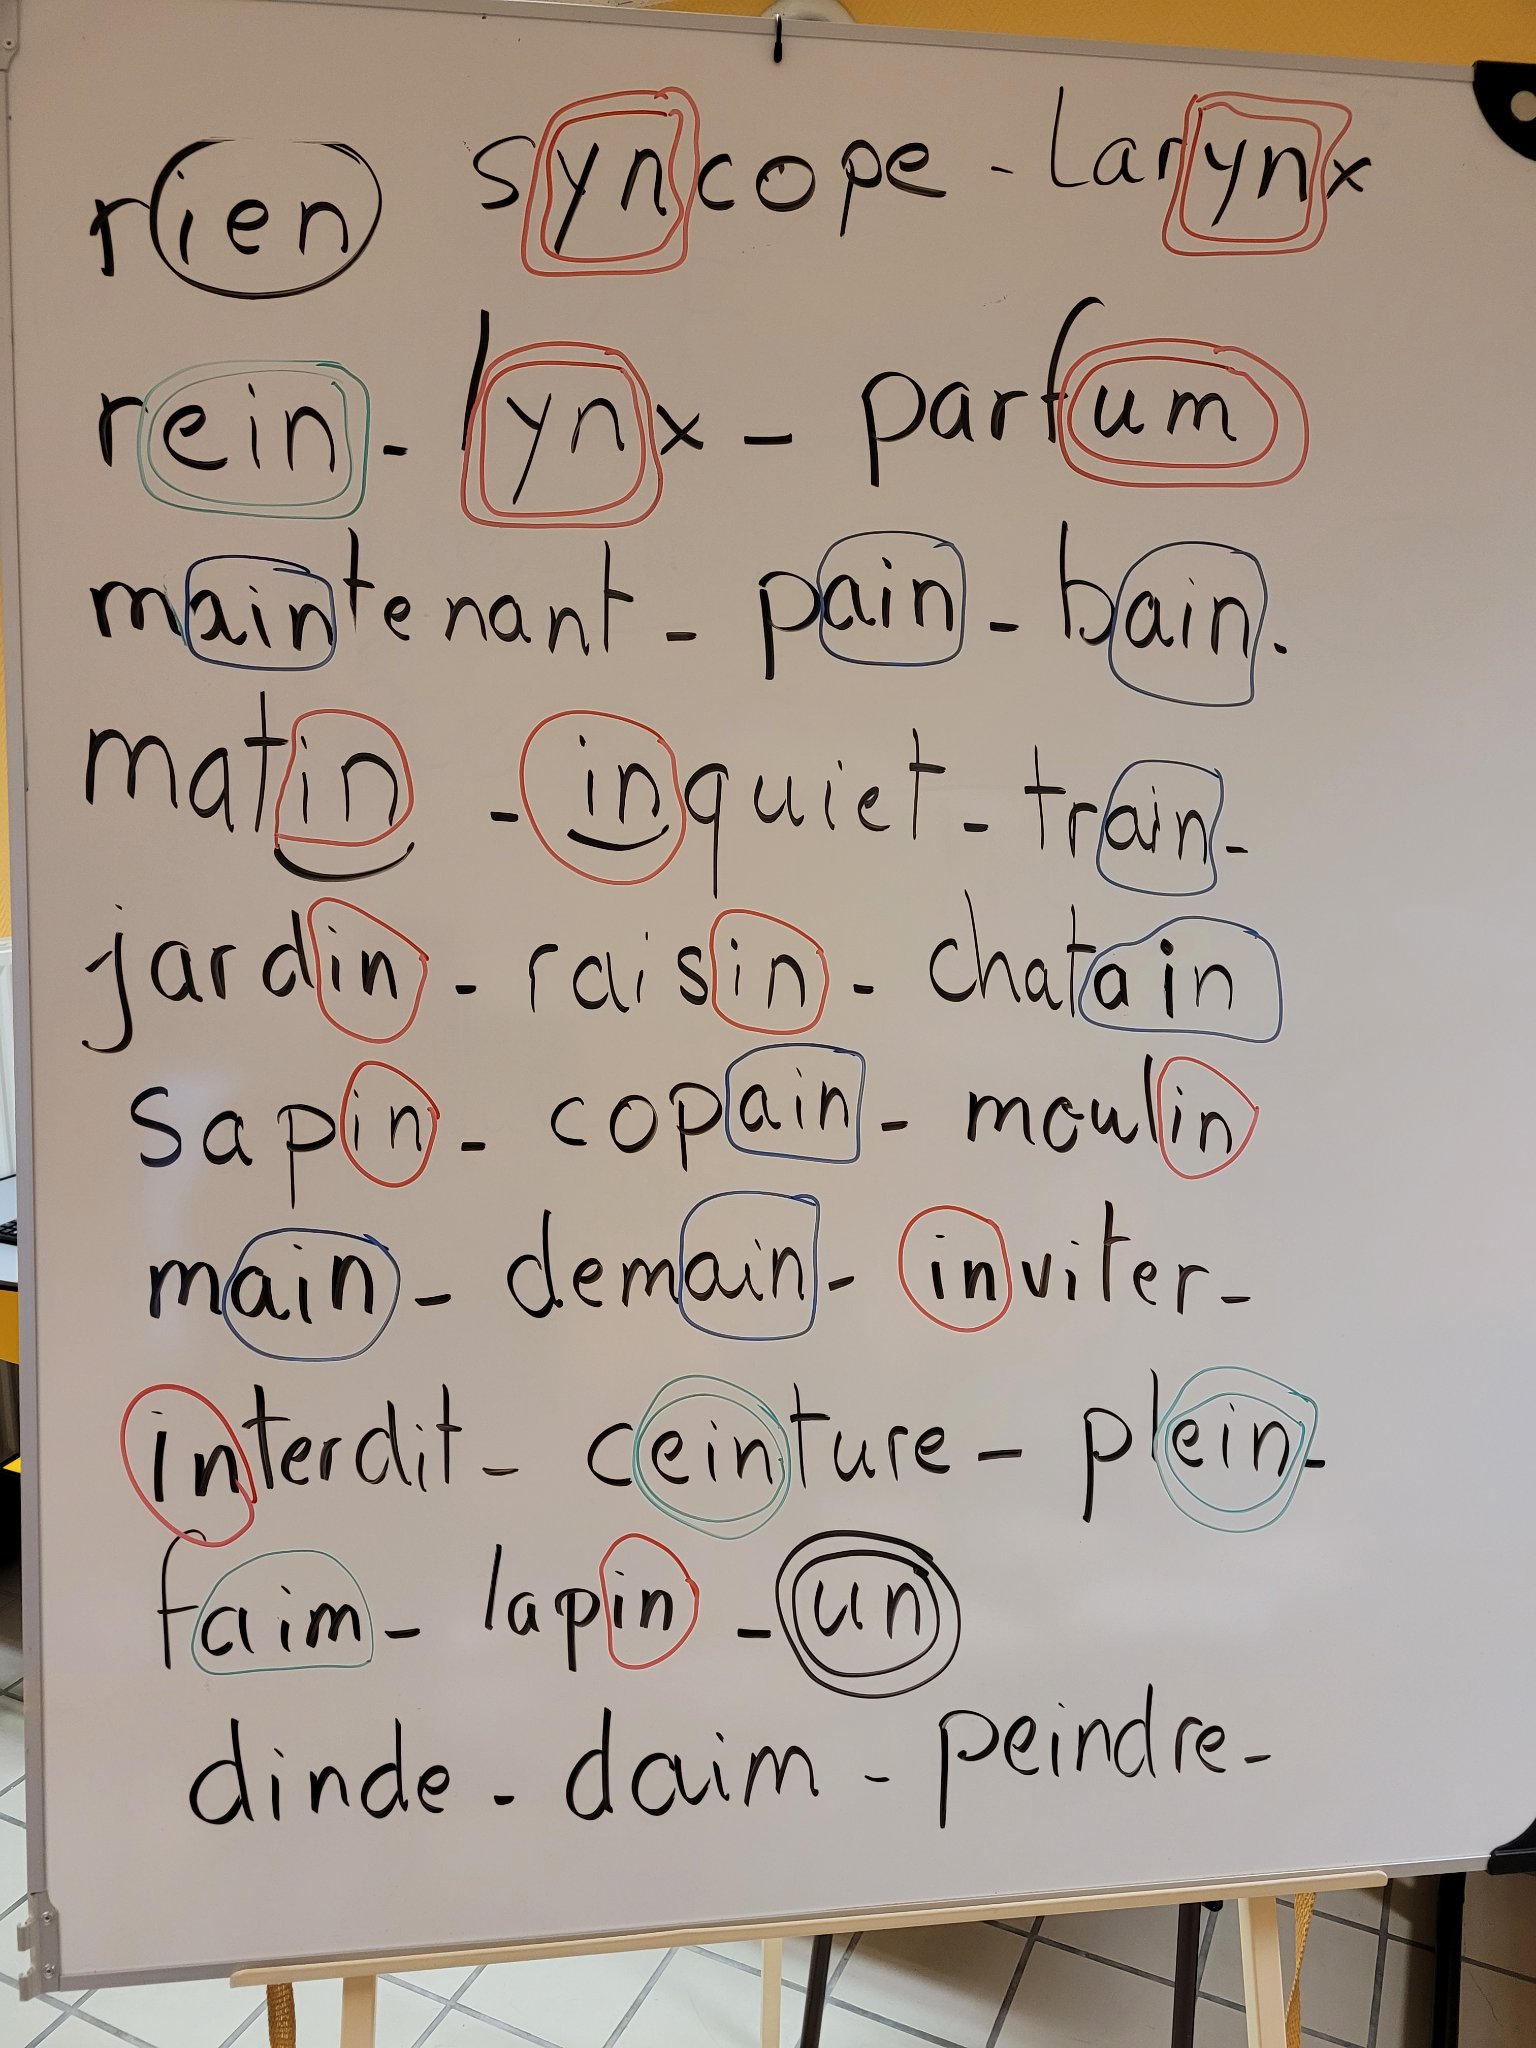 rien syncope - larynx
rein - lynx - parfum
maintenant - pain - bain.
matin - inquiet - train -
jardin - raisin - chatain
sapin - copain - moulin
main - demain - inviter -
interdit - ceinture - plein -
faim - lapin - un
dinde - daim - peindre -